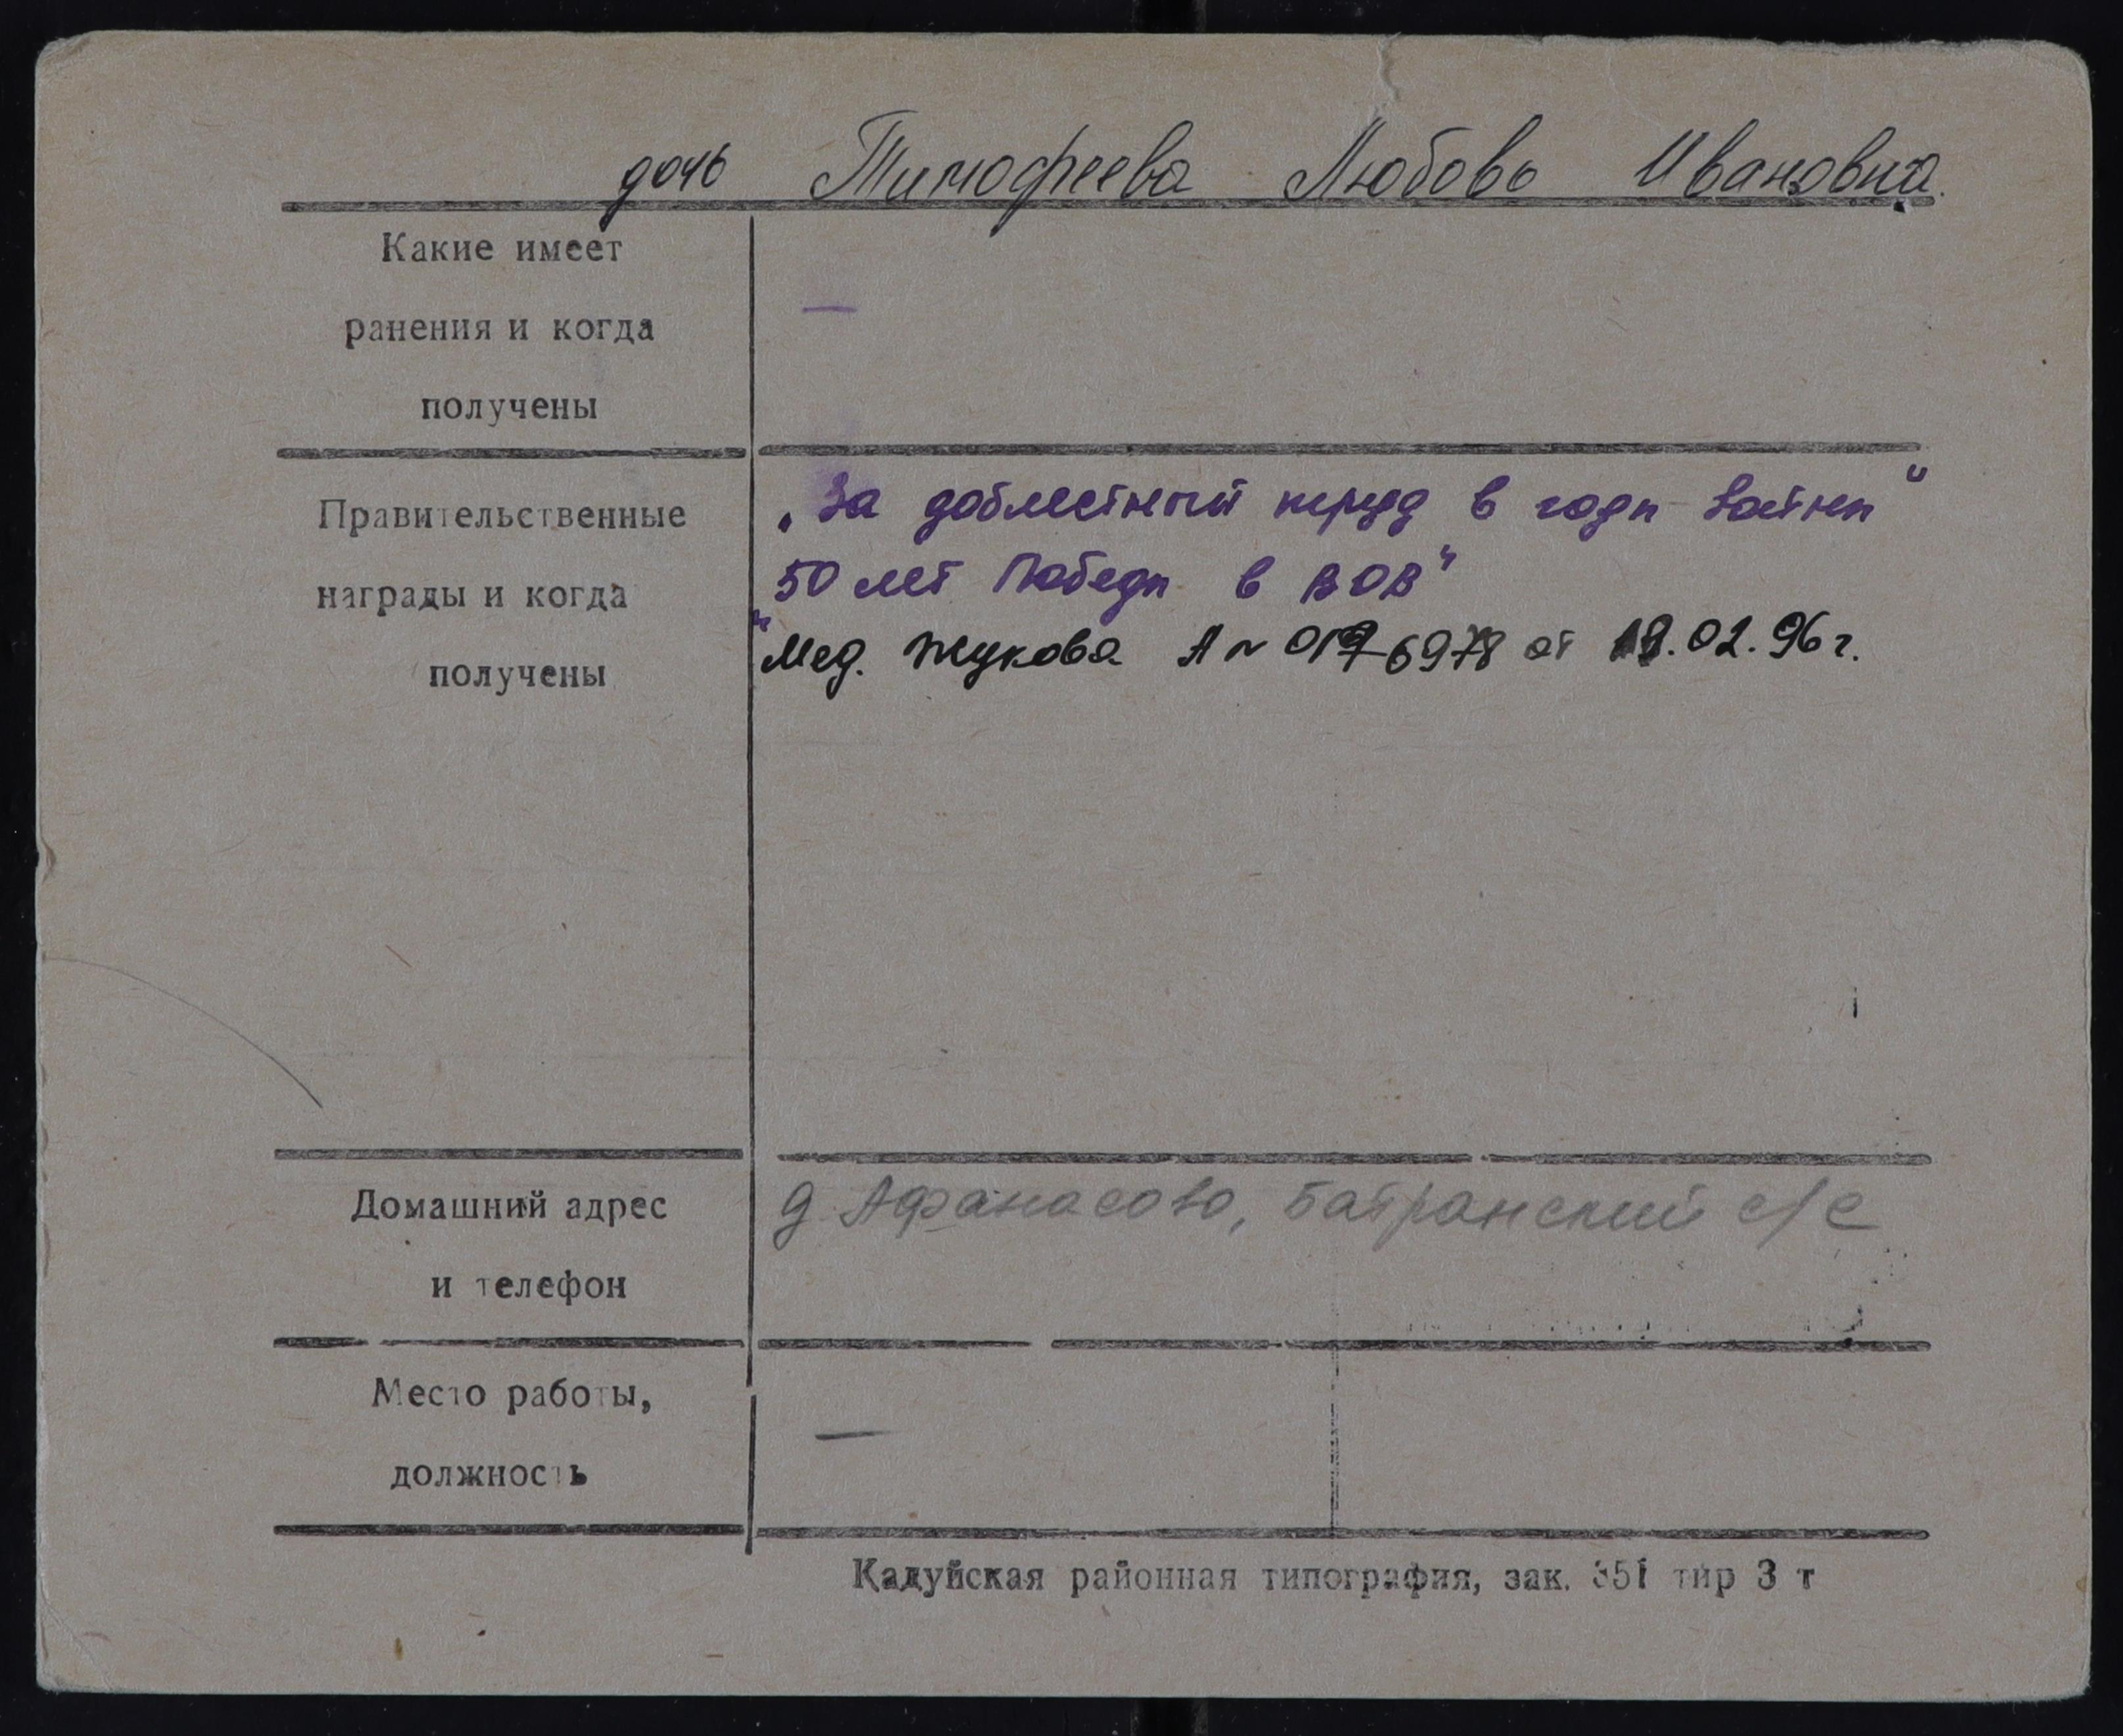 дочь Тимофеева Любовь Ивановна.
Какие имеет
ранения и когда
получены
—
Правительственные
награды и когда
получены
„За доблестный труд в годы войны"
50 лет Победы в ВОВ"
"Мед. Жукова А № от 02.96 г.
Домашний адрес
и телефон
д. Афанасово, Батранский с/с
Место работы,
должность
—
Кадуйская районная типография, зак. 351 тир 3 т